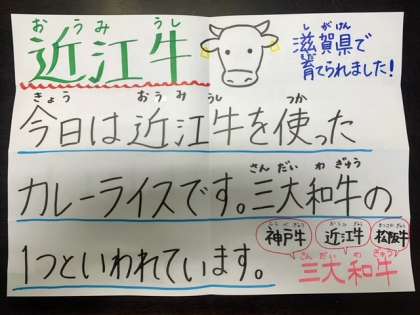 おうみうし
近江牛
しがけん
滋賀県で
育てられました!
きょう おうみうし つか
今日は近江牛を使った
さんだいわぎゅう
カレーライスです。三大和牛の
神戸牛 近江牛 松阪牛
1つといわれています。
さんだいわぎゅう
三大和牛